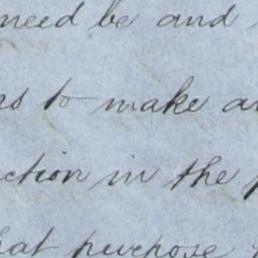 need be and
to make
ction in the
hat purpose